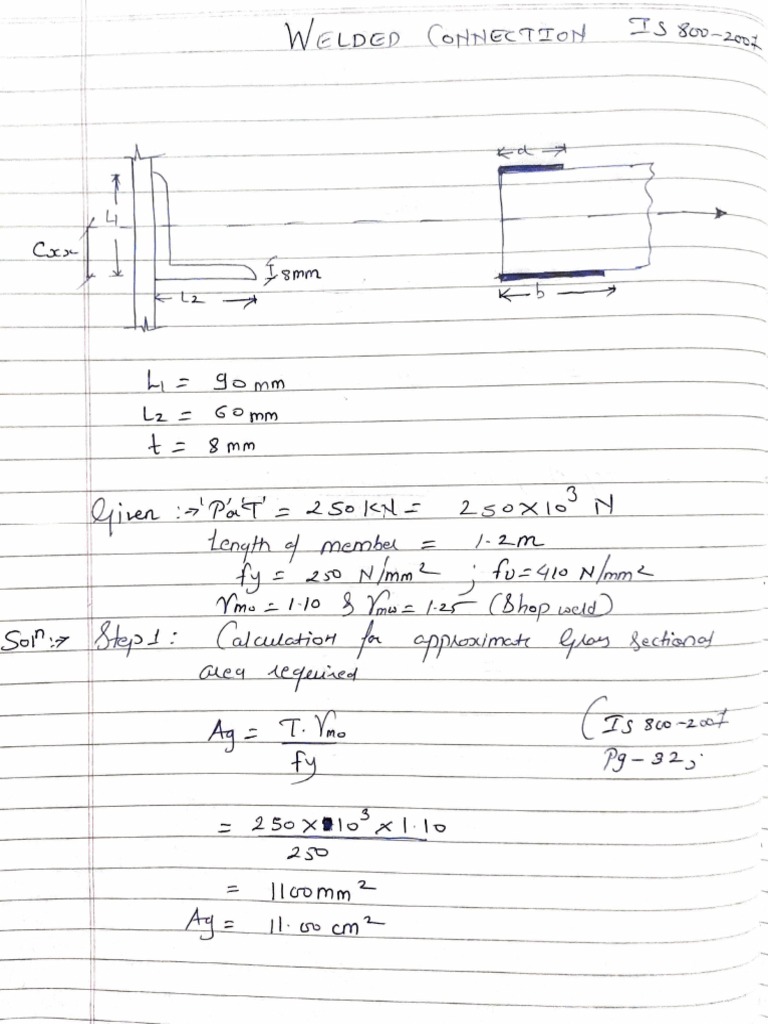 WELDED CONNECTION IS 800-2007
d
L1
Cxx
8mm
L2
b
L1 = 90 mm
L2 = 60 mm
t = 8 mm
Given :→ 'P'a'T' = 250 KN = 250×10³ N
Length of member = 1.2m
fy = 250 N/mm² ; fu = 410 N/mm²
γmo = 1.10 & γmw = 1.25 (Shop weld)
Solⁿ:→ Step 1: Calculation for approximate Gross Sectional
area required
Ag = T. γmo (IS 800-2007
fy Pg-32;
= 250 × 10³ × 1.10
250
= 1100mm²
Ag = 11.00 cm²